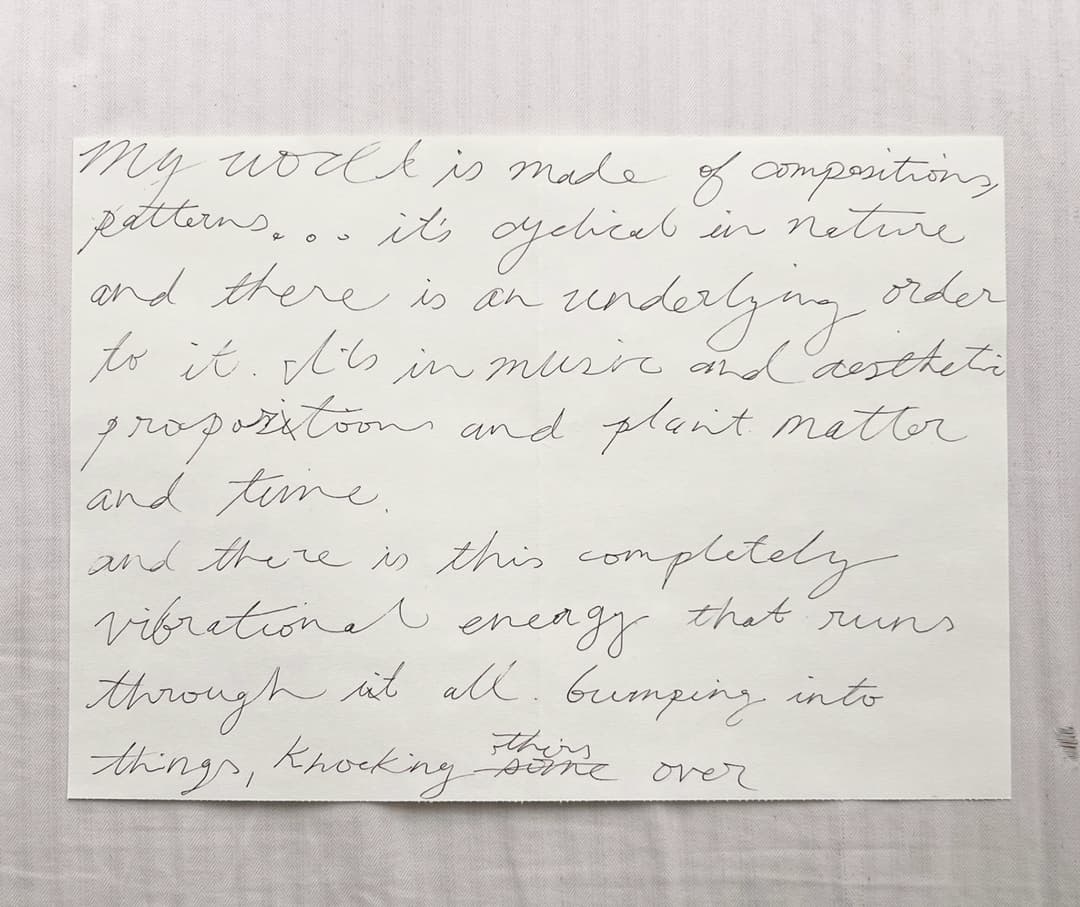 My world is made of compositions,
patterns... it's cyclical in nature
and there is an underlying order
to it. It's in music and aesthetic
propositions and plant matter
and time.
and there is this completely
vibrational energy that runs
through it all. bumping into
things, knocking over